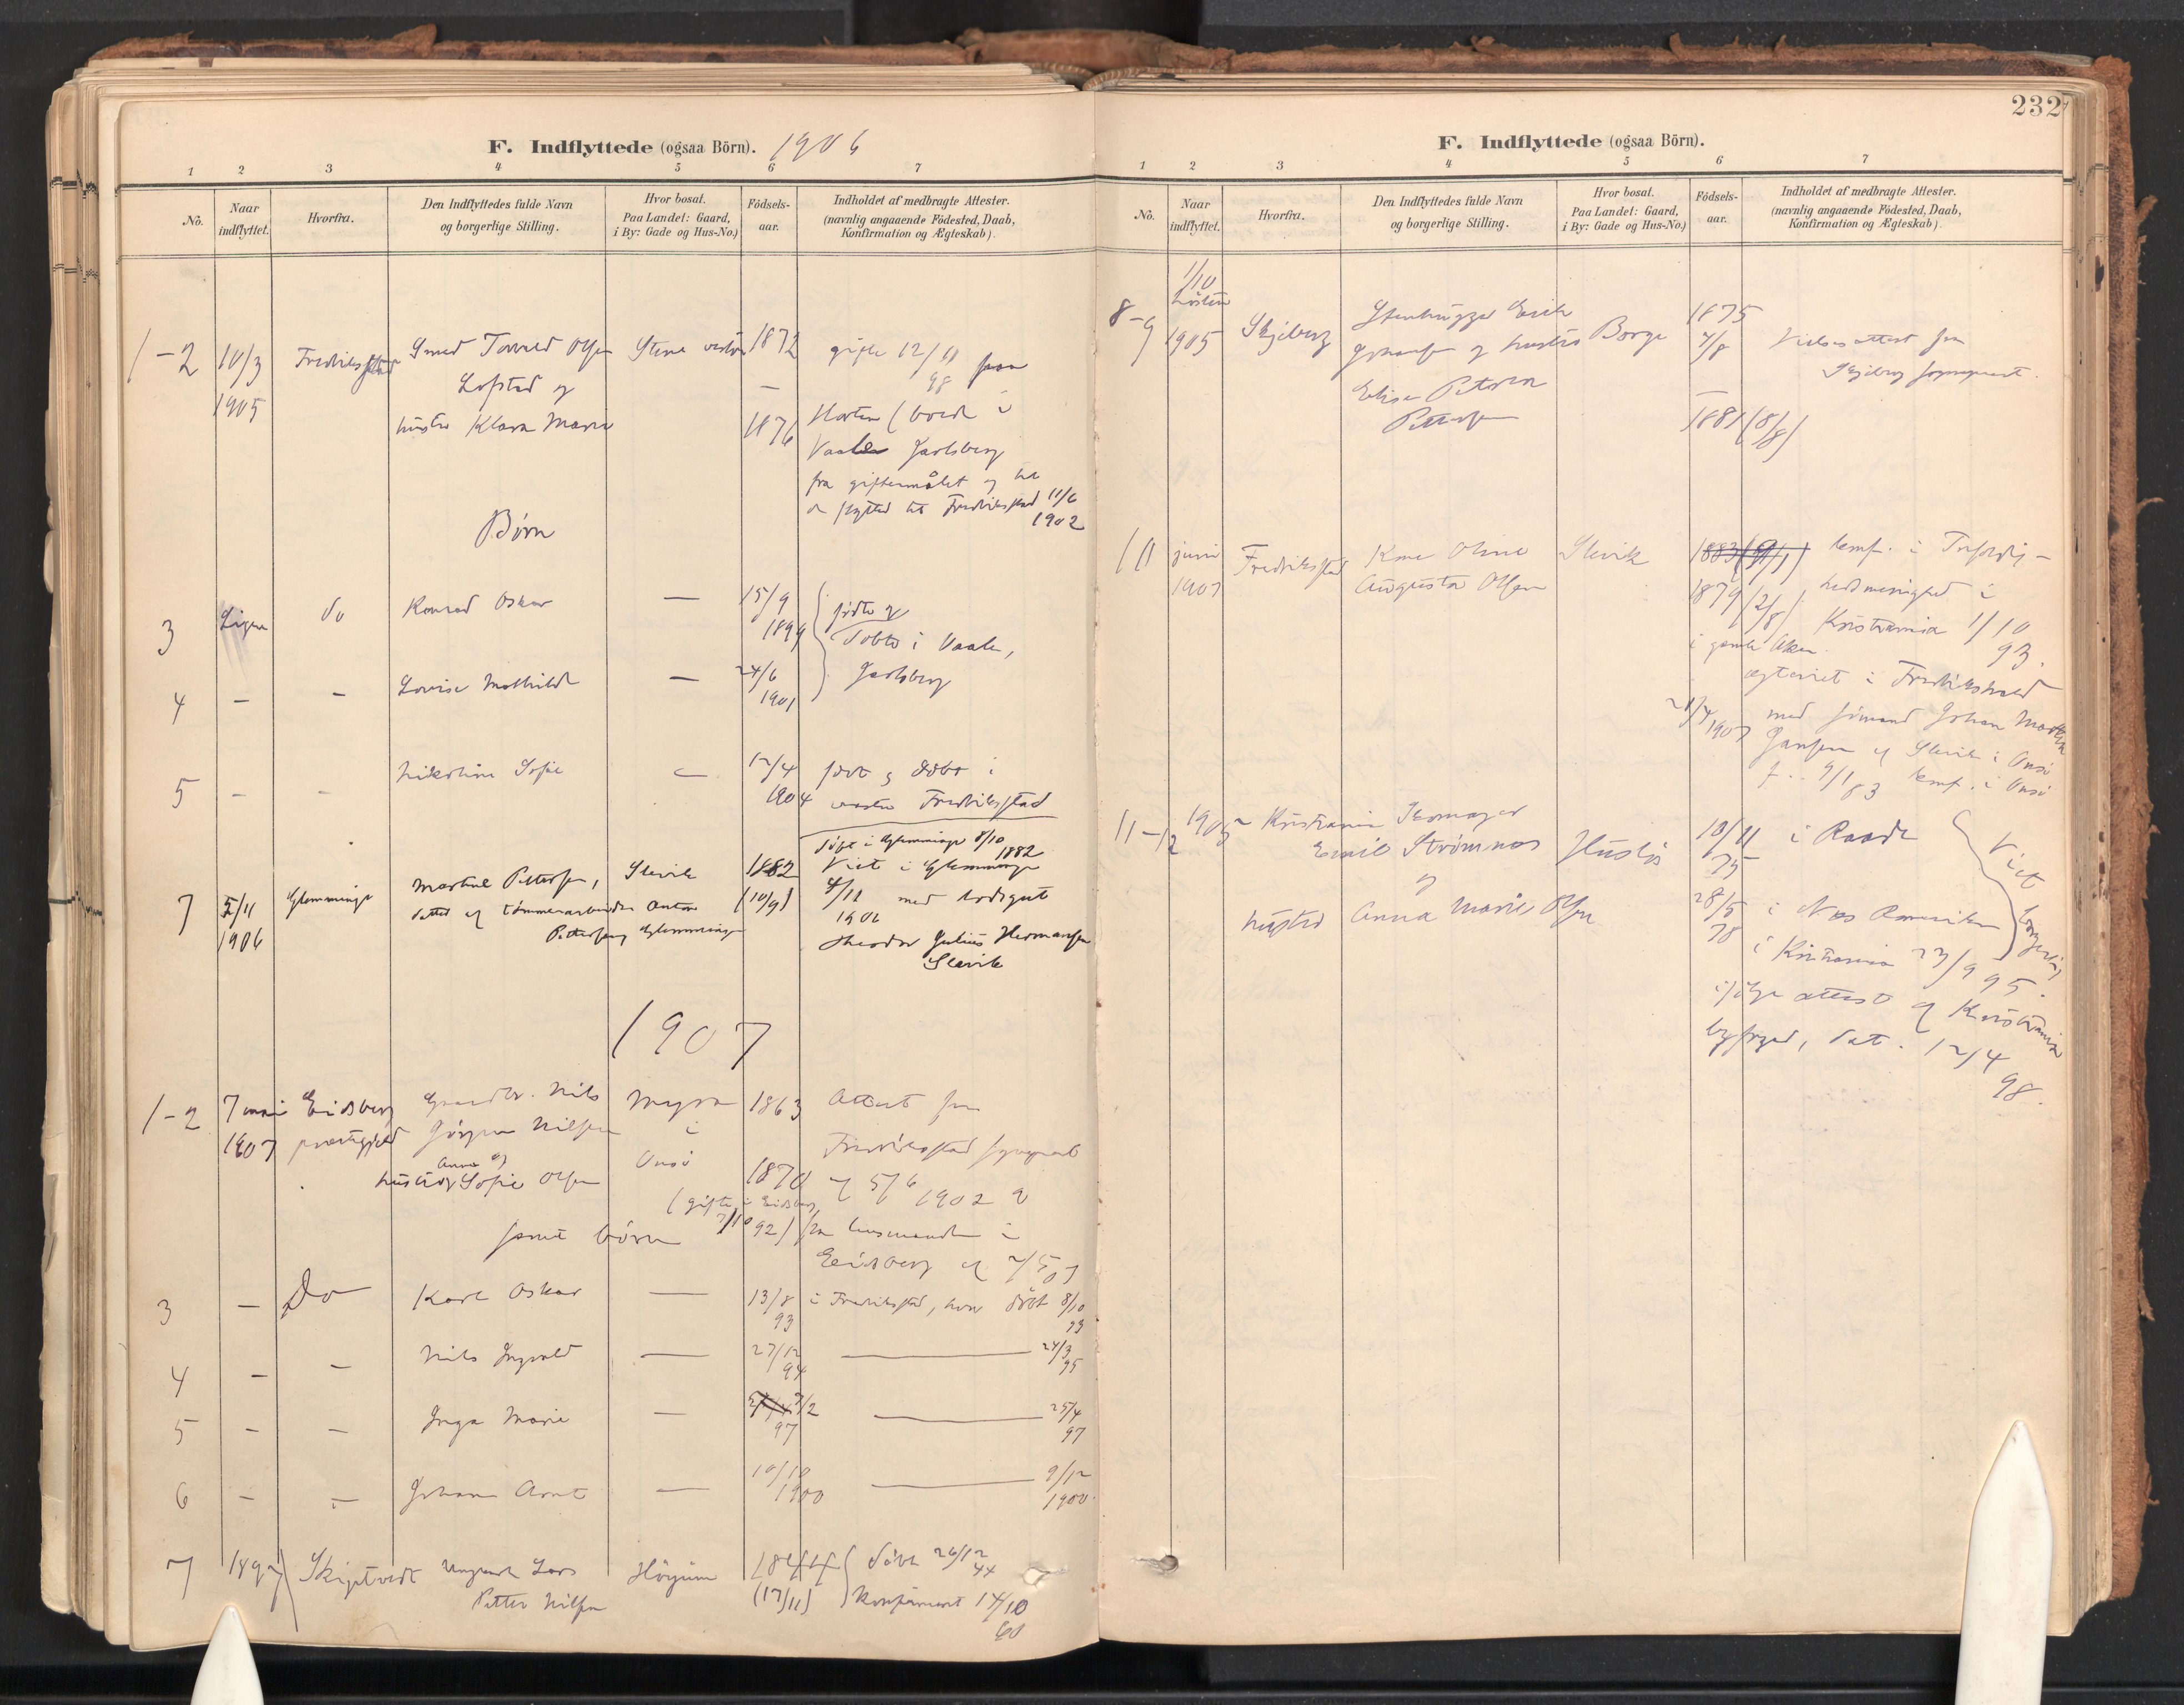 F. Indflyttede (ogsaa Börn). 1906
1 2 3 4 5 6 7
No.
Naar indflyttet.
Hvorfra.
Den Indflyttedes fulde Navn og borgerlige Stilling.
Hvor bosat. Paa Landet: Gaard, i By: Gade og Hus-No.)
Födsels-aar.
Indholdet af medbragte Attester. (navnlig angaaende Födested, Daab, Konfirmation og Ægteskab).
1-2 10/3 Fredriksstad Smed Torvald Olsen Stene vestre 1872 gifte 12/11 98 paa
1905 Lofstad og —
hustru Klara Marie 1876 Horten (boede i
Vaale Jarlsberg
fra giftermålet og til
de flytted til Fredriksstad 11/6
1902
Børn
3 do Konrad Oskar — 15/9 1899 født og
døbte i Vaale,
4 — — Lovise Mathilde — 24/6 1901 Jarlsberg
5 — — Nikoline Sofie — 12/4 1904 født og døbt i
vestre Fredriksstad
døbt i Glemminge 8/10 1882
7 5/11 1906 Glemminge Martine Pettersen, Slevik 1882 (10/9) Viet i Glemminge
datter af tømmerarbeider Anton 4/11 1906 med lodsgut
Pettersen, Glemminge Theodor Julius Hermansen
Slevik
1907
1-2 7 mai Eidsberg Gaardbr. Nils Myra 1863 Attest fra
1907 præstegjeld Jörgen Nilsen i Fredriksstad sognepræst
Anna og
hustru Sofie Olsen Onsö 1870 af 5/6 1902 &
(gifte i Eidsberg,
samt börn 7/10 92) fra lensmanden i
Eidsberg af 2/5 07
3 — Do Karl Oskar — 13/8 93 i Fredriksstad, hvor døbt 8/10 93
4 — — Nils Ingvald — 27/12 94 — 24/3 95
5 — — Inga Marie — 3/2 97 — 25/4 97
6 — — Johan Arnt — 10/10 1900 — 9/12 1900
7 1897 Skiptvedt Ungkarl Lars Höyum 1844 døbt 26/12 44
Petter Nilsen (17/11) Konfirmert 14/10 60
232
F. Indflyttede (ogsaa Börn).
1 2 3 4 5 6 7
No.
Naar indflyttet.
Hvorfra.
Den Indflyttedes fulde Navn og borgerlige Stilling.
Hvor bosat. Paa Landet: Gaard, i By: Gade og Hus-No.)
Födsels-aar.
Indholdet af medbragte Attester. (navnlig angaaende Födested, Daab, Konfirmation og Ægteskab).
1/10
8-9 1905 Skjeberg Stenhugger Erik 1875
Johansen og hustru Borge 4/8 Vielsesattest fra
Elise Petrea — Skjeberg sogneprest.
Pettersen 1881 (8/8)
10 juni Fredriksstad Karen Oline Slevik 1883 (9/1) konf. i
1907 Augusta Olsen 1879 (2/8) menighed i
Kristiania 1/10 93.
i gamle Aker
ægteviet i Fredrikshald
21/4 1907 med sömand Johan Martin
Jansen af Slevik i Onsö
f. 9/1 83 konf. i Onsö
11-12 Kristiania Skomager
Emil Strömnes Husløs 10/11 75 i Raade
og
hustru Anna Marie Olsen 28/5 78 i Nes Romerike
Viet borgerlig
i Kristiania 23/9 95.
ifölge attest af Kristiania
byfoged, dat. 12/4
98.